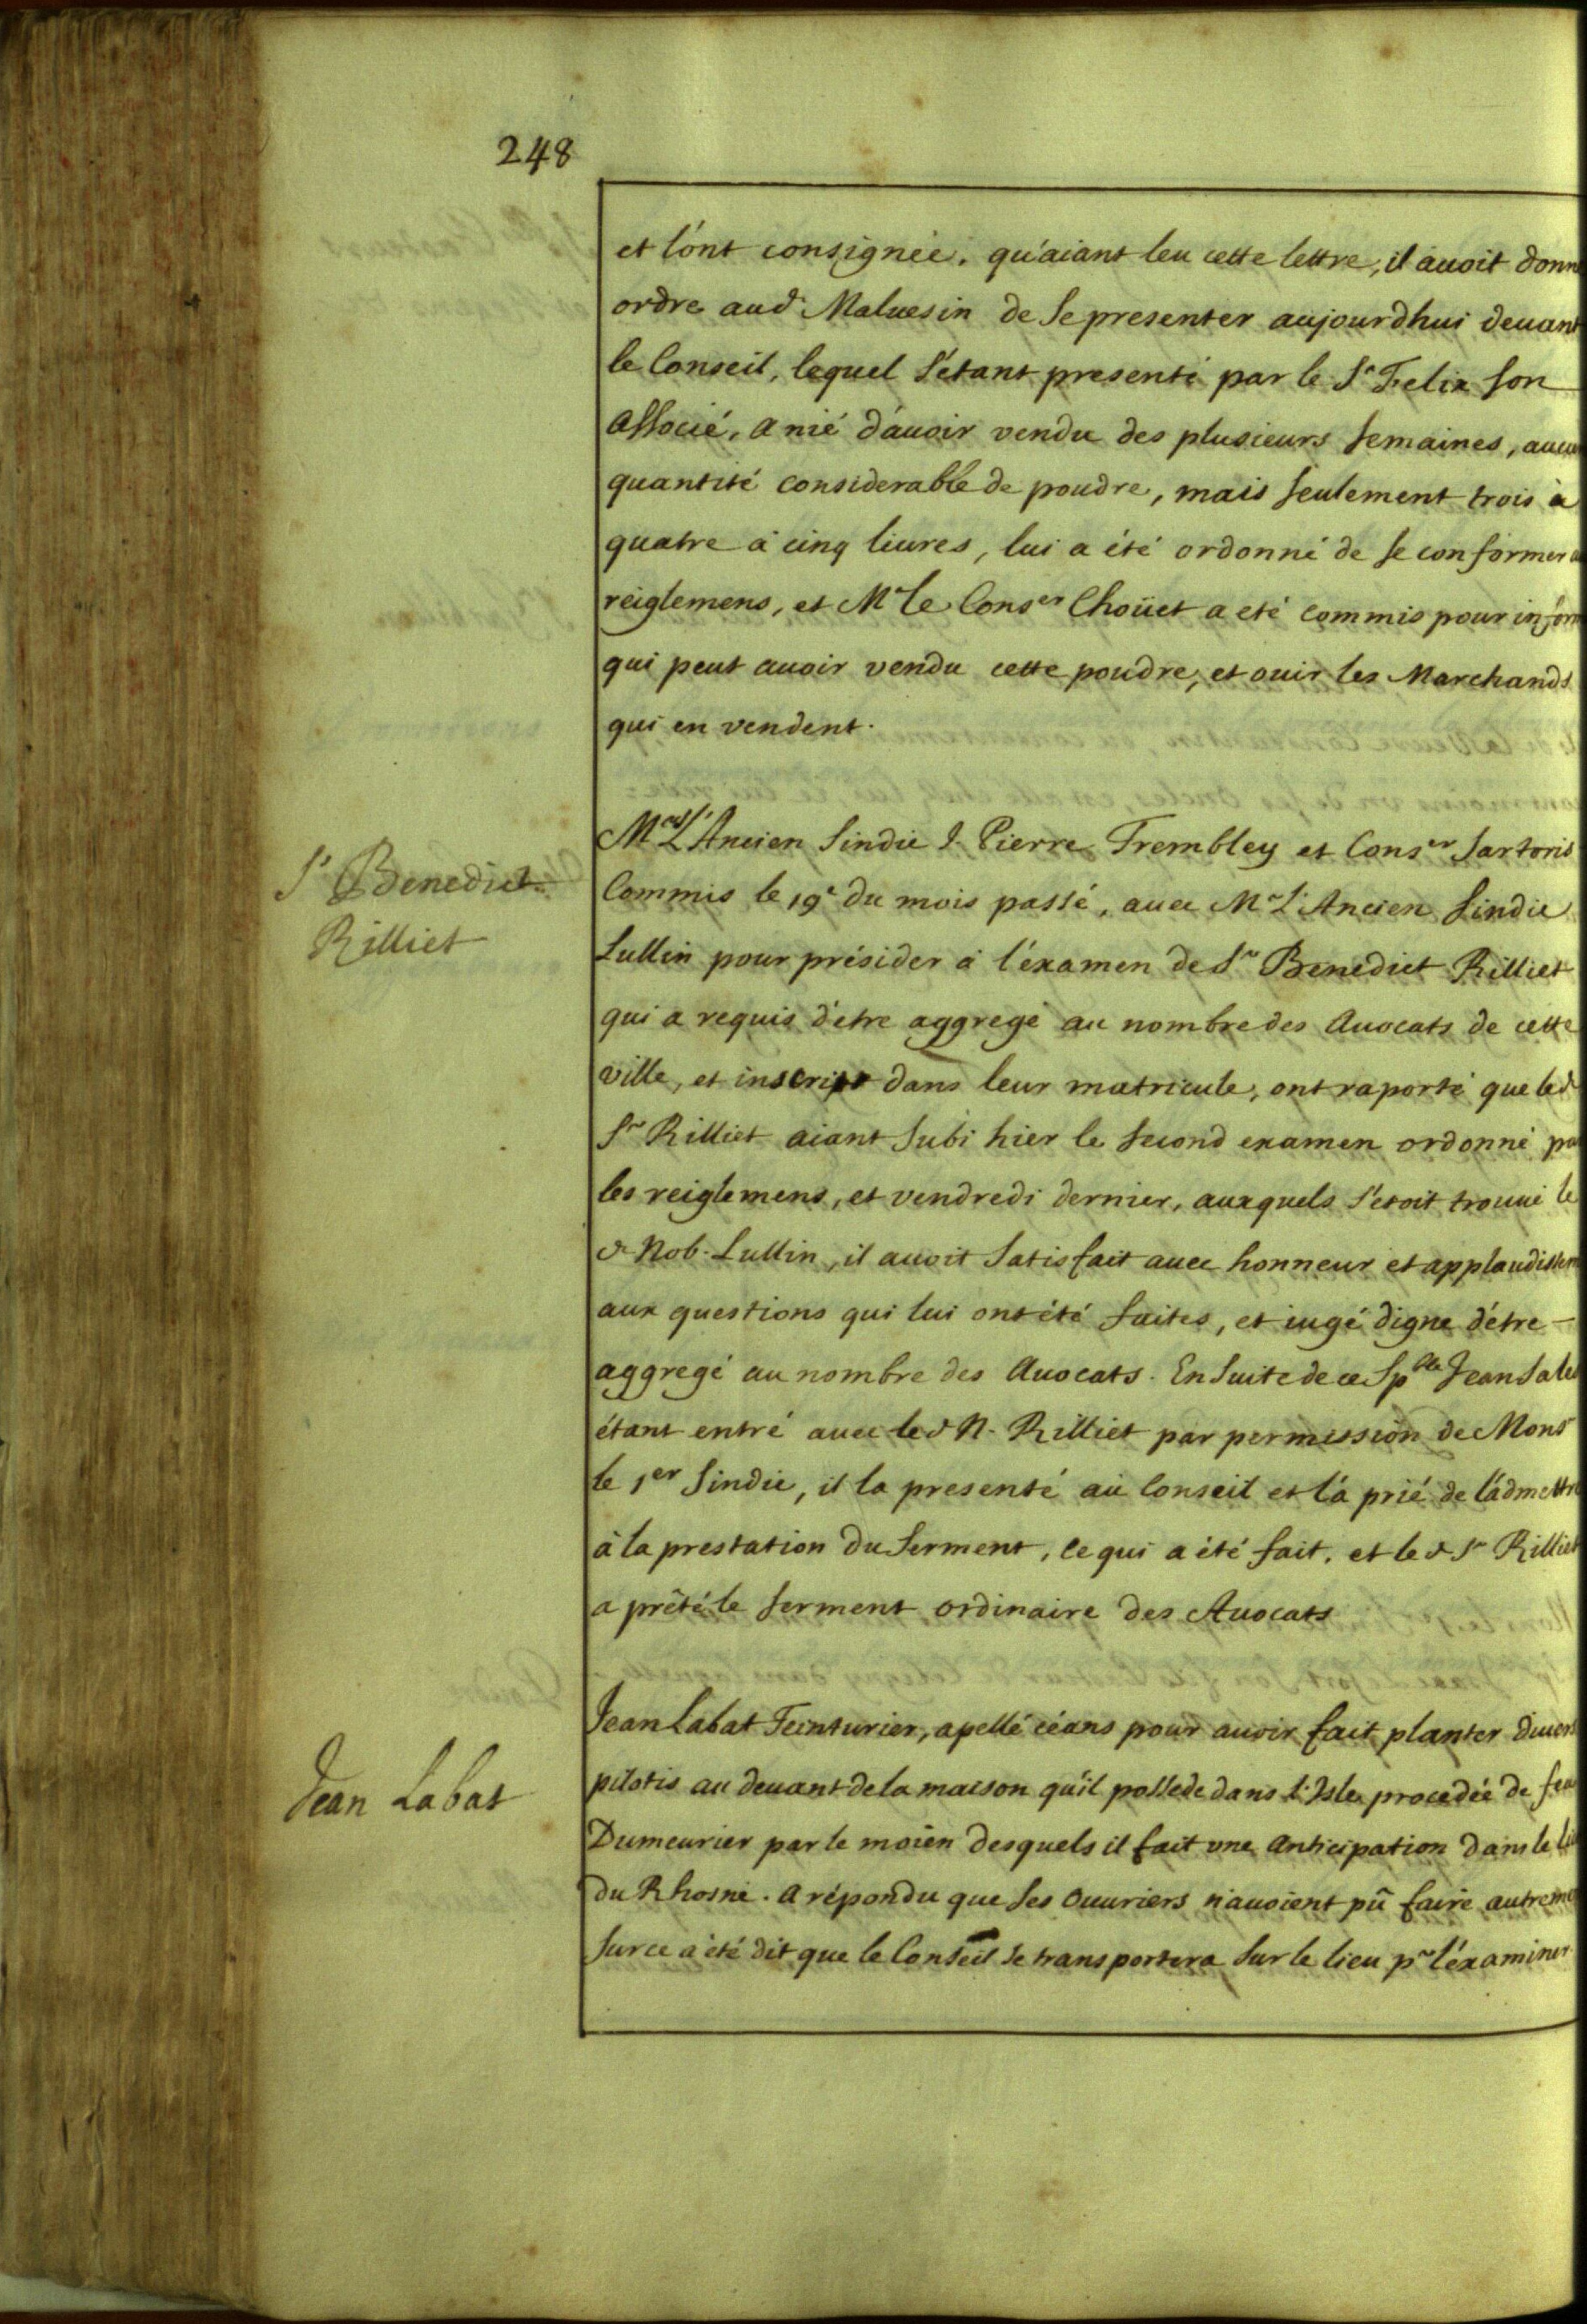 248
et l'ont consignée. qu'aiant leu cette lettre, il auoit donn
ordre aud. Maluesin de se presenter aujourdhui deuant
le Conseil, lequel s'étant presenté par le Sr Felix son
associé, a nié d'auoir vendu des plusieurs semaines, aucu
quantité considerable de poudre, mais seulement trois à
quatre à cinq liures, lui a été ordonné de se conformer
reiglemens, et Mr le Conser Choüet a eté commis pour infor
qui peut auoir vendu cette poudre, et ouir les Marchands
qui en vendent.
Sr Benedict
Rilliet
Mess. L'Ancien Sindic J. Pierre Trembley et Conser Sartoris
Commis le 19e du mois passé, auec Mr L'Ancien Sindic
Lullin pour présider à l'éxamen de Sr Benedict Rilliet
qui a requis d'etre aggregé au nombre des Auocats de cette
ville, et inscript dans leur matricule, ont raporté que led
Sr Rilliet aiant subi hier le second examen ordonné pa
les reiglemens, et vendredi dernier, auxquels s'etoit trouué le
d Nob. Lullin, il auoit satisfait auec honneur et applaudissem
aux questions qui lui ont été faites, et iugé digne d'étre
aggregé au nombre des Auocats. En suite de ce Spble Jean Sales
étant entré auec led N. Rilliet par permission de Monsr
le 1er Sindic, il la presenté au Conseil et l'a prié de l'admettre
à la prestation du serment, ce qui a été fait. et led Sr Rilliet
a prêté le serment ordinaire des Auocats
Jean Labat
Jean Labat Teinturier, apellé céans pour auoir fait planter diuers
pilotis au deuant de la maison qu'il possede dans l'Isle procedée de feu
Dumeurier par le moien desquels il fait une Anticipation dans le li
du Rhosne. a répondu que ses Ouuriers n'auoient pû faire autreme
sur ce a été dit que le Conseil se transportera sur le lieu pr l'éxaminer